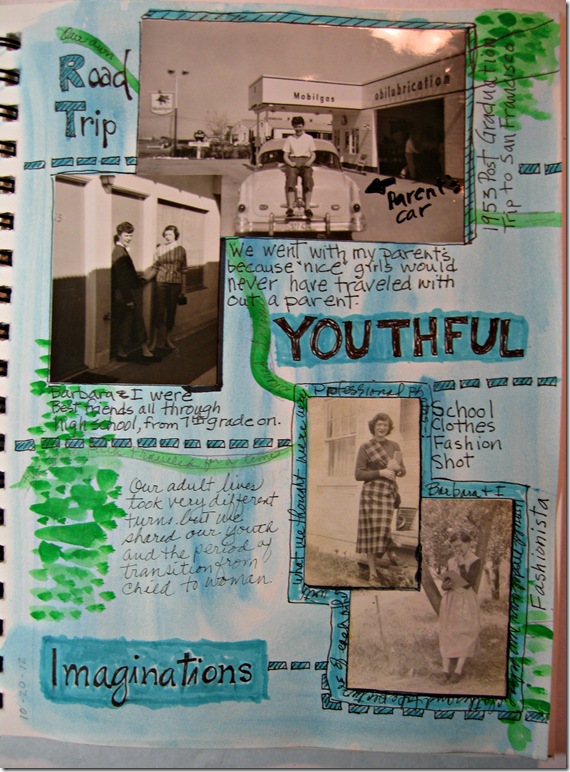 Our own
Road
Trip
Mobilgas
obilubrication
Parent's
car
1953 Post Graduation
Trip to San Francisco
We went with my parent's
because "nice" girls would
never have traveled with
out a parent.
YOUTHFUL
Barbara & I were
best friends all through
high school, from 7th grade on.
School
Clothes
Fashion
Shot
what we thought were very
Professional
Barbara & I
Fashionista
Our adult lives
took very different
turns but we
shared our youth
and the period of
transition from
child to woman.
Imaginations
of each other
10-20-12